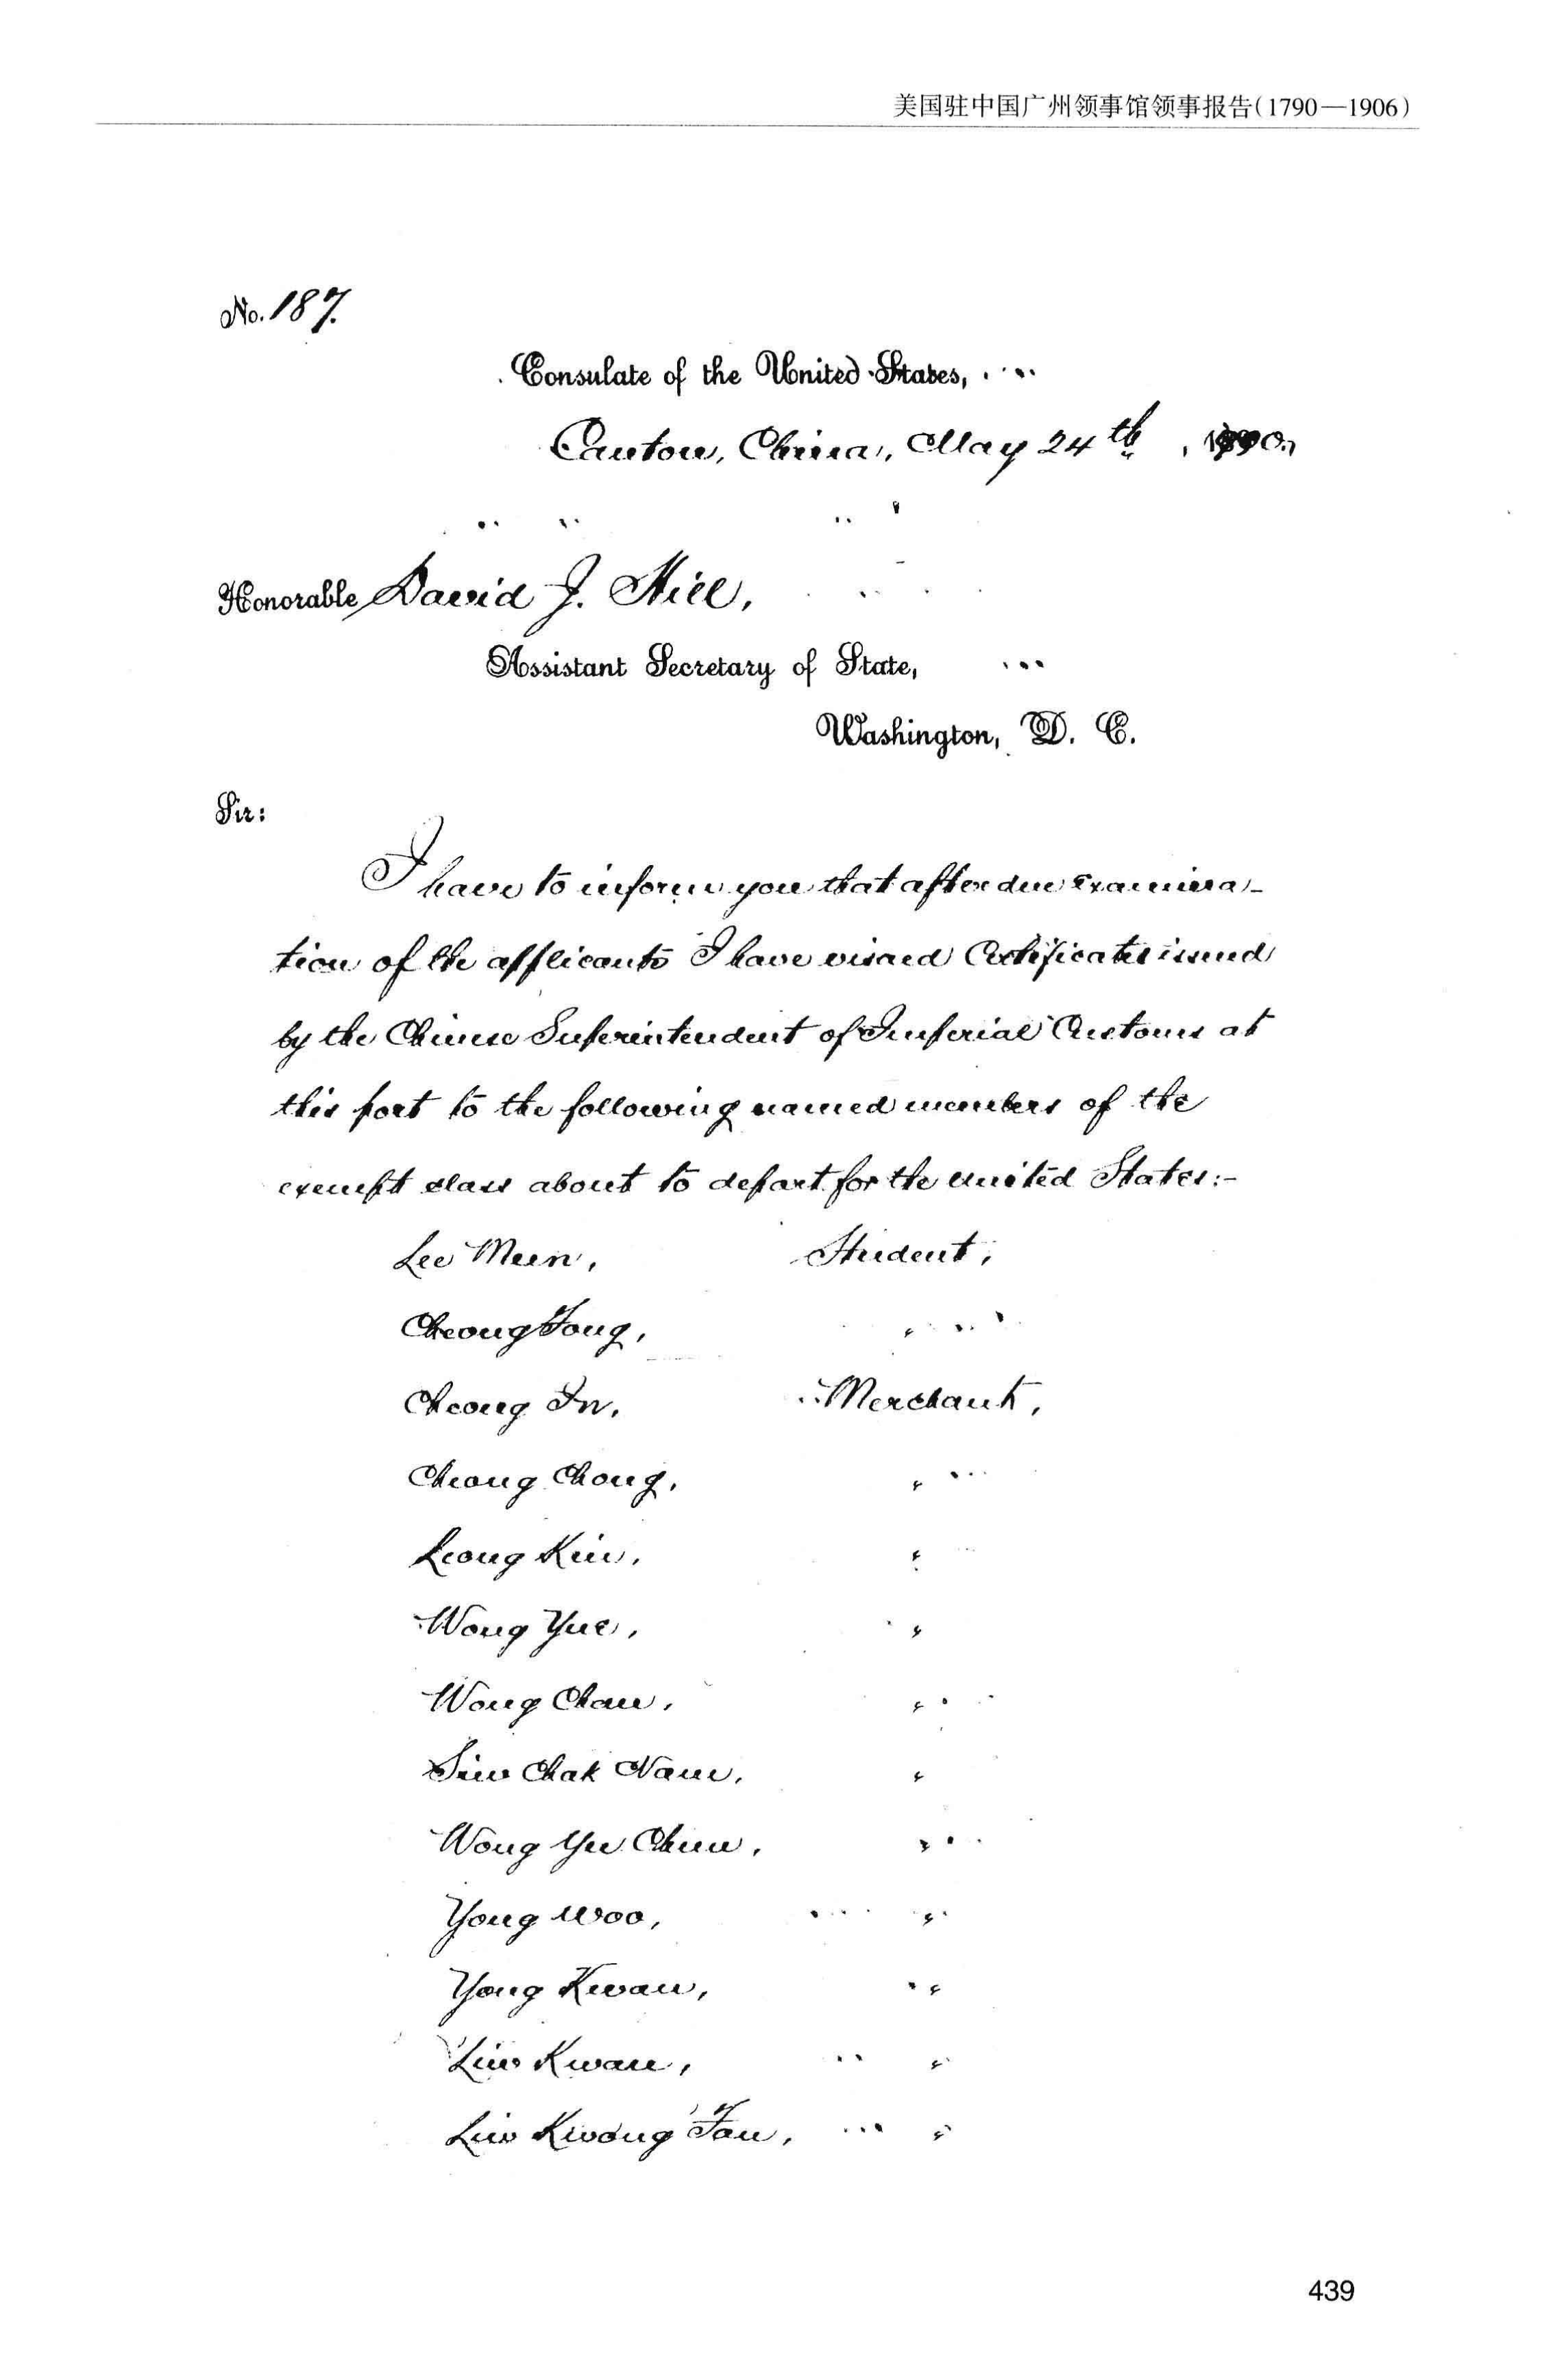 美国驻中国广州领事馆领事报告(1790—1906)
No. 187.
Consulate of the United States,
Canton, China, May 24th,
Honorable David J. Hill,
Assistant Secretary of State,
Washington, D. C.
Sir:
I have to inform you that after due examina-
tion of the applicants I have visaed Certificates issued
by the Chinese Superintendent of Imperial Customs at
this port to the following named members of the
exempt class about to depart for the United States:-
Lee Meen, Student,
Cheong Tong, "
Cheong In, Merchant,
Cheong Chong, "
Leong Kin, "
Wong Yue, "
Wong Chan, "
Siu Chak Nam, "
Wong Yu Chun, "
Yong Woo, "
Yong Kwan, "
Liu Kwan, "
Liu Kwong Fan, "
439